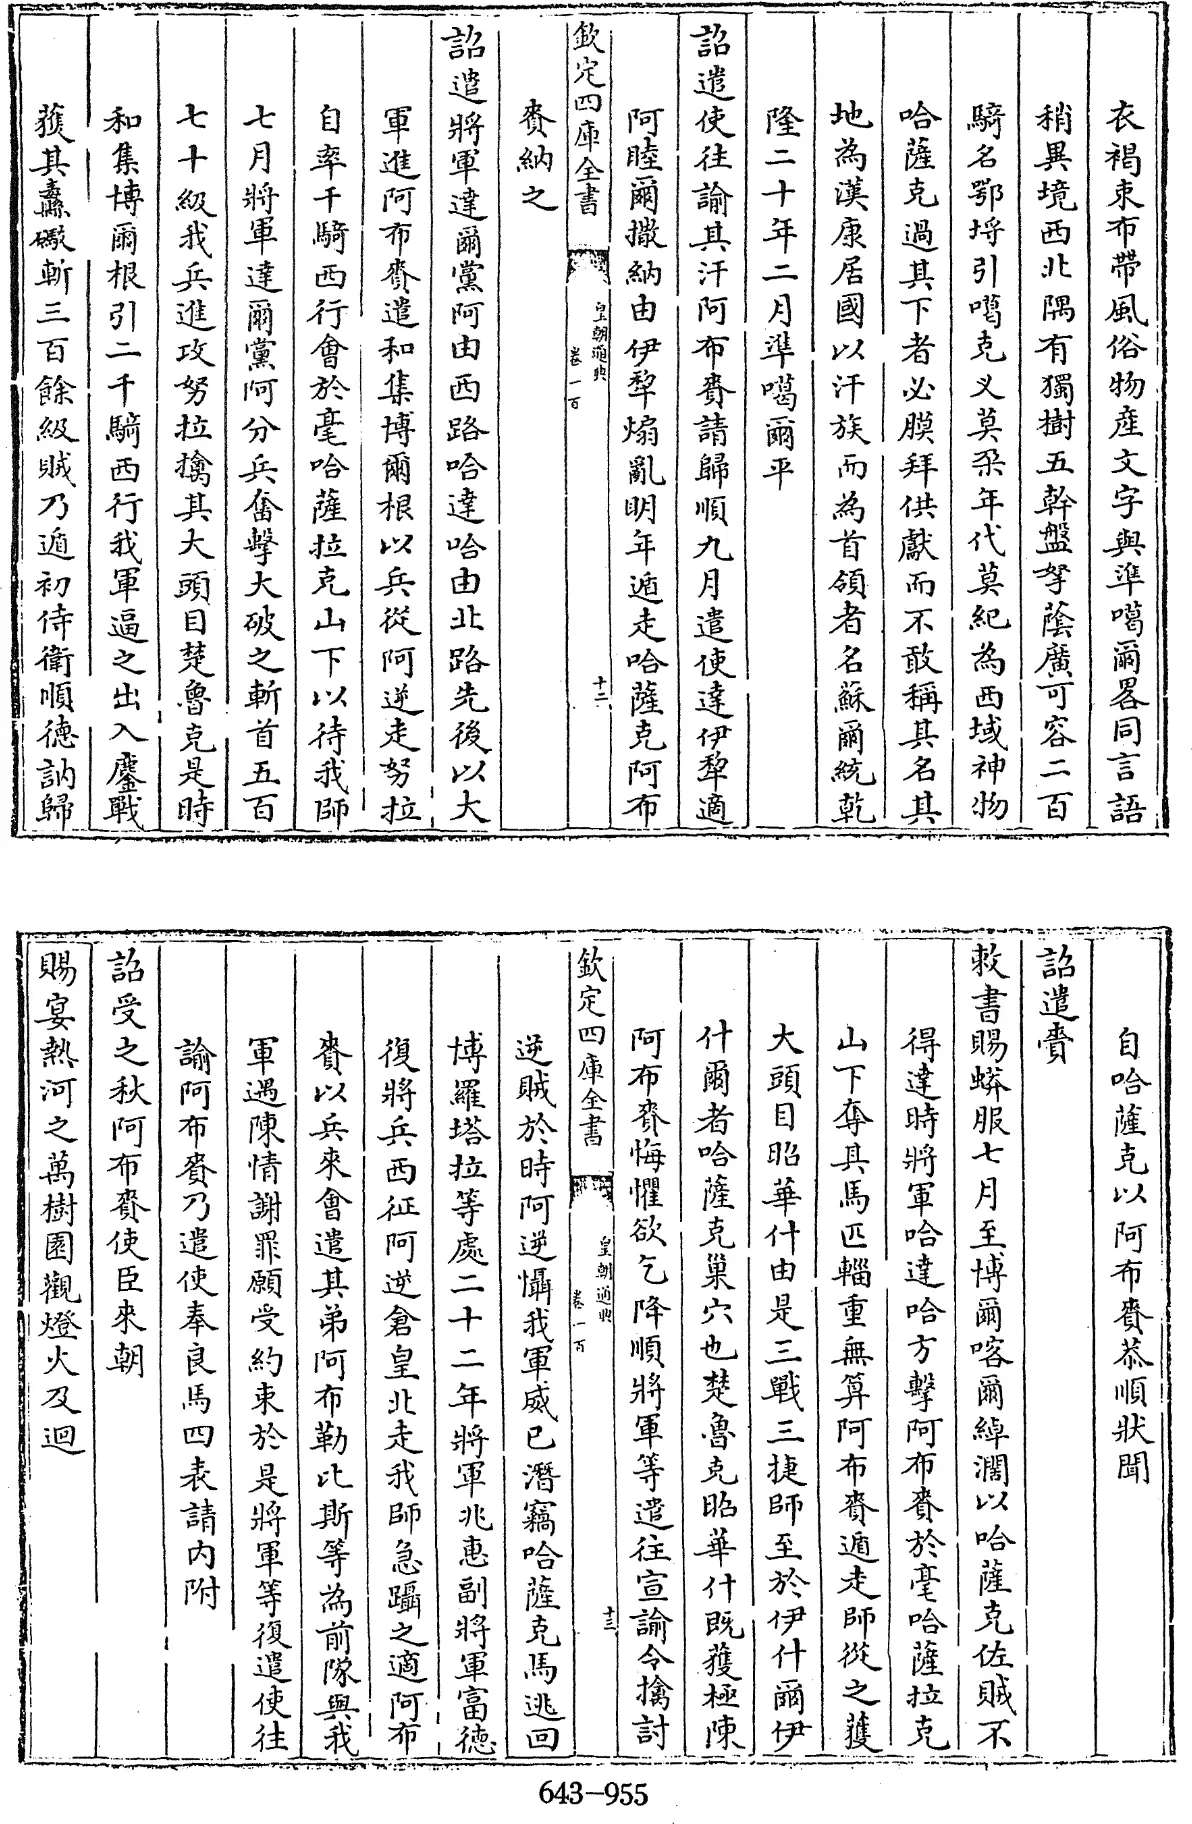 衣褐束布帶風俗物産文字與準噶爾畧同言語
稍異境西北隅有獨樹五幹盤拏蔭廣可容二百
騎名鄂埒引噶克乂莫朶年代莫紀為西域神物
哈薩克過其下者必膜拜供獻而不敢稱其名其
地為漢康居國以汗族而為首領者名蘇爾統乾
隆二十年二月準噶爾平
詔遣使往諭其汗阿布賚請歸順九月遣使達伊犂適
阿睦爾撒納由伊犂煽亂明年遁走哈薩克阿布
欽定四庫全書
皇朝通典
卷一百
十二
賚納之
詔遣將軍達爾黨阿由西路哈達哈由北路先後以大
軍進阿布賚遣和集博爾根以兵從阿逆走努拉
自率千騎西行會於毫哈薩拉克山下以待我師
七月將軍達爾黨阿分兵奮擊大破之斬首五百
七十級我兵進攻努拉擒其大頭目楚魯克是時
和集博爾根引二千騎西行我軍逼之出入鏖戰
獲其纛礮斬三百餘級賊乃遁初侍衛順德訥歸
自哈薩克以阿布賚恭順狀聞
詔遣賫
敕書賜蟒服七月至博爾喀爾綽濶以哈薩克佐賊不
得達時將軍哈達哈方擊阿布賚於毫哈薩拉克
山下奪其馬匹輜重無算阿布賚遁走師從之獲
大頭目昭華什由是三戰三捷師至於伊什爾伊
什爾者哈薩克巢穴也楚魯克昭華什既獲極陳
阿布賚悔懼欲乞降順將軍等遣往宣諭令擒討
欽定四庫全書
皇朝通典
卷一百
十三
逆賊於時阿逆懾我軍威已潛竊哈薩克馬逃回
博羅塔拉等處二十二年將軍兆惠副將軍富德
復將兵西征阿逆倉皇北走我師急躡之適阿布
賚以兵來會遣其弟阿布勒比斯等為前隊與我
軍遇陳情謝罪願受約束於是將軍等復遣使往
諭阿布賚乃遣使奉良馬四表請内附
詔受之秋阿布賚使臣來朝
賜宴熱河之萬樹園觀燈火及迴
643-955